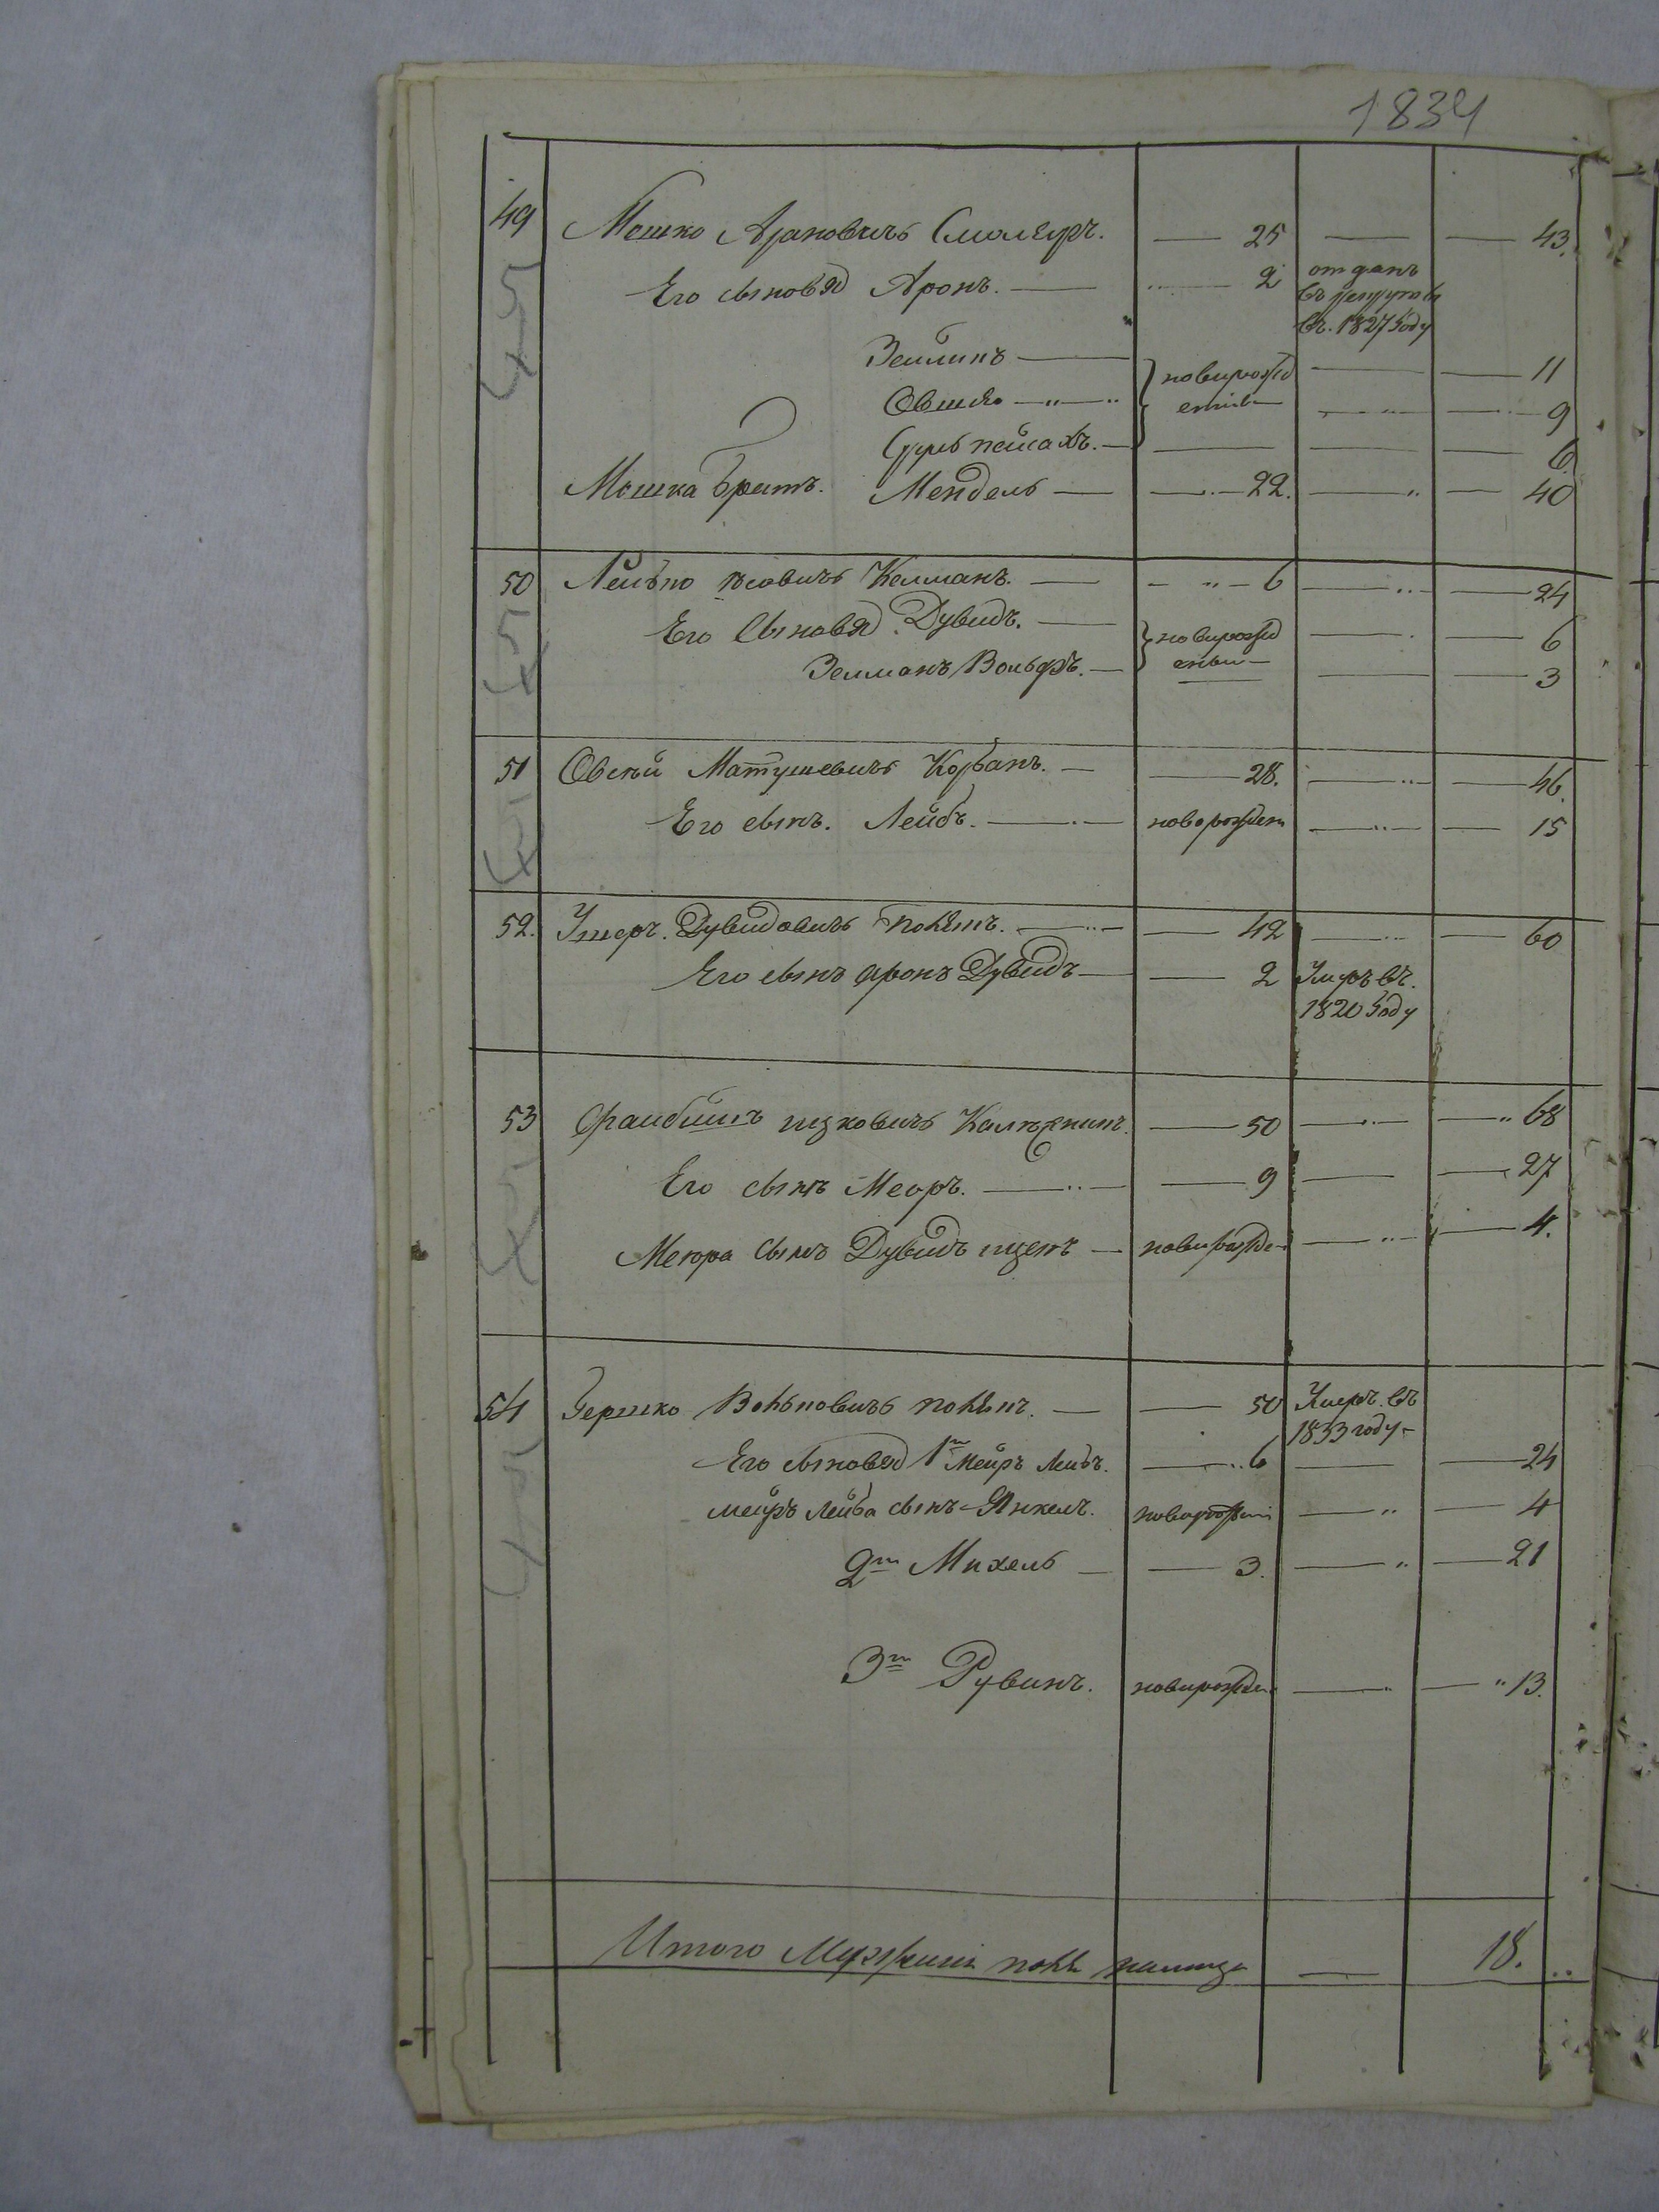 1834
49 Мошко Ароновичъ Смоляръ. — 25 — — 43.
Его сыновья Аронъ. — 2 отданъ
въ рекруты
въ. 1827 году
Зеиликъ — новорожд — 11
Овшія — енные — 9
Сруль пейсахъ. — — — 6.
Мошка братъ. Мендель — 22. — 40
50 Лейбко Іосовичъ Колманъ. — 6 — 24
Его Сыновья. Дувидъ. — новорожд — 6
Зелманъ Вольфъ. — енные — 3
51 Овсѣй Матушевичъ Корбанъ. — 28. — 46.
Его сынъ. Лейбъ. — новорожден — 15
52. Ушеръ. Дувидовичъ — 42 — 60
Его сынъ аронъ Дувидъ — 2 Умеръ въ.
1820 году
53 Фаибишъ ицковичъ — 50 — 68
Его сынъ Меоръ. — 9 — 27
Меюра Сынъ Дувидъ ицекъ — новорожде — 4.
54 Гершко Вольковичъ — 50 Умеръ. въ
1833 году —
Его сыновья 1й Меиръ Леибъ. — 6 — 24
меиръ леиба сынъ Янкель. новорожден — 4
2й Михель — 3. — 21
3й Рувинъ. новорожден — 13.
Итого Мужеска — 18.
45
45
45
45
45